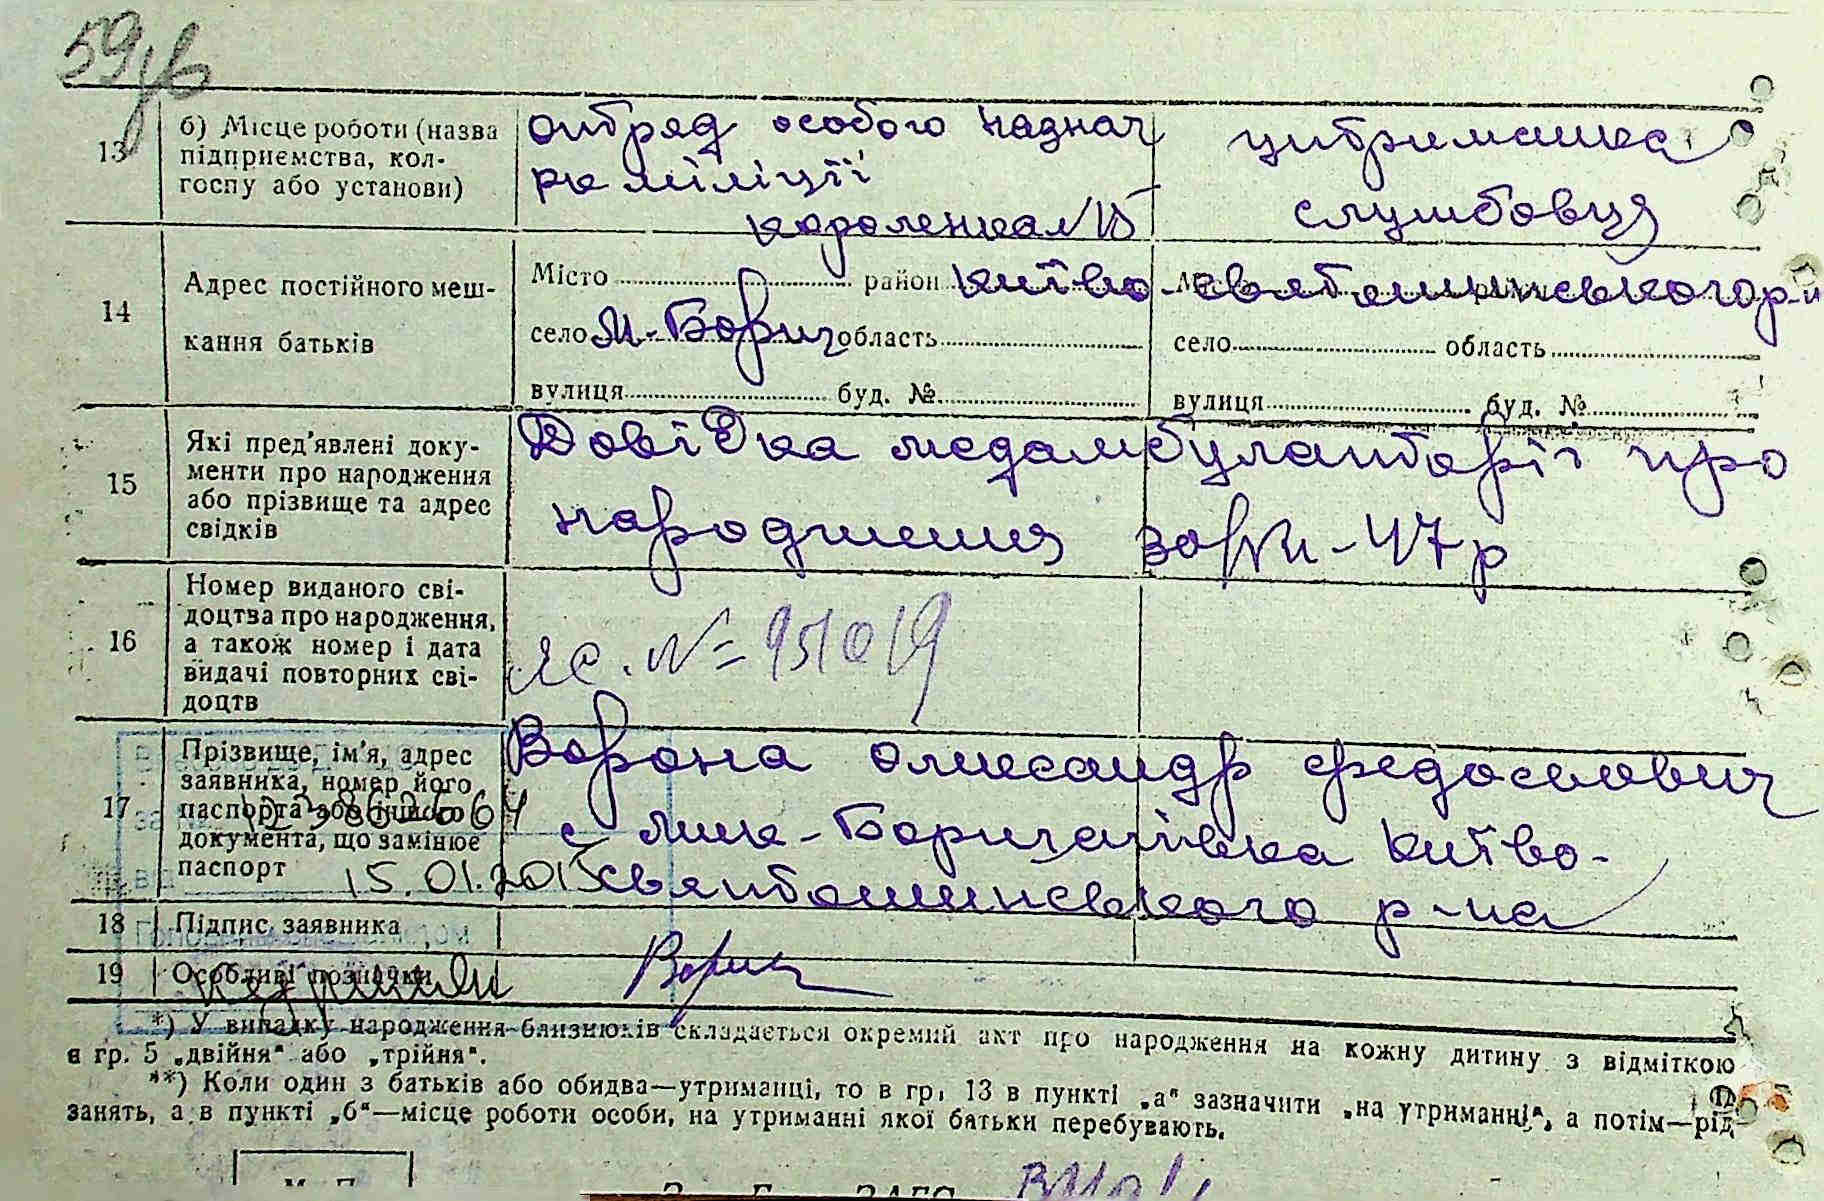 59
13
б) Місце роботи (назва
підприємства, кол-
госпу або установи)
отбряд особого назнач
ря міліції
короленка № 15
утбриманка
службовця
14
Адрес постійного меш-
кання батьків
Місто район Київо-святошинського р-н
село М-Борщ область
село область
вулиця буд. №
вулиця буд. №
15
Які пред'явлені доку-
менти про народження
або прізвище та адрес
свідків
Довідка медамбулаторії про
народження за 47 р
16
Номер виданого сві-
доцтва про народження,
а також номер і дата
видачі повторних сві-
доцтв
ЯС. № = 951019
17
Прізвище, ім'я, адрес
заявника, номер його
паспорта або іншого
документа, що замінює
паспорт
15.01.2015
Ворона Олександр Федосьович
с Мик-Борщагівка Київо-
святошинського р-на
18
Підпис заявника
19
Особливі позначки
*) У випадку народження близнюків складається окремий акт про народження на кожну дитину з відміткою
в гр. 5 „двійня“ або „трійня“.
**) Коли один з батьків або обидва—утриманці, то в гр. 13 в пункті „а“ зазначити „на утриманні“, а потім—рід
занять, а в пункті „б“—місце роботи особи, на утриманні якої батьки перебувають.
М. П.